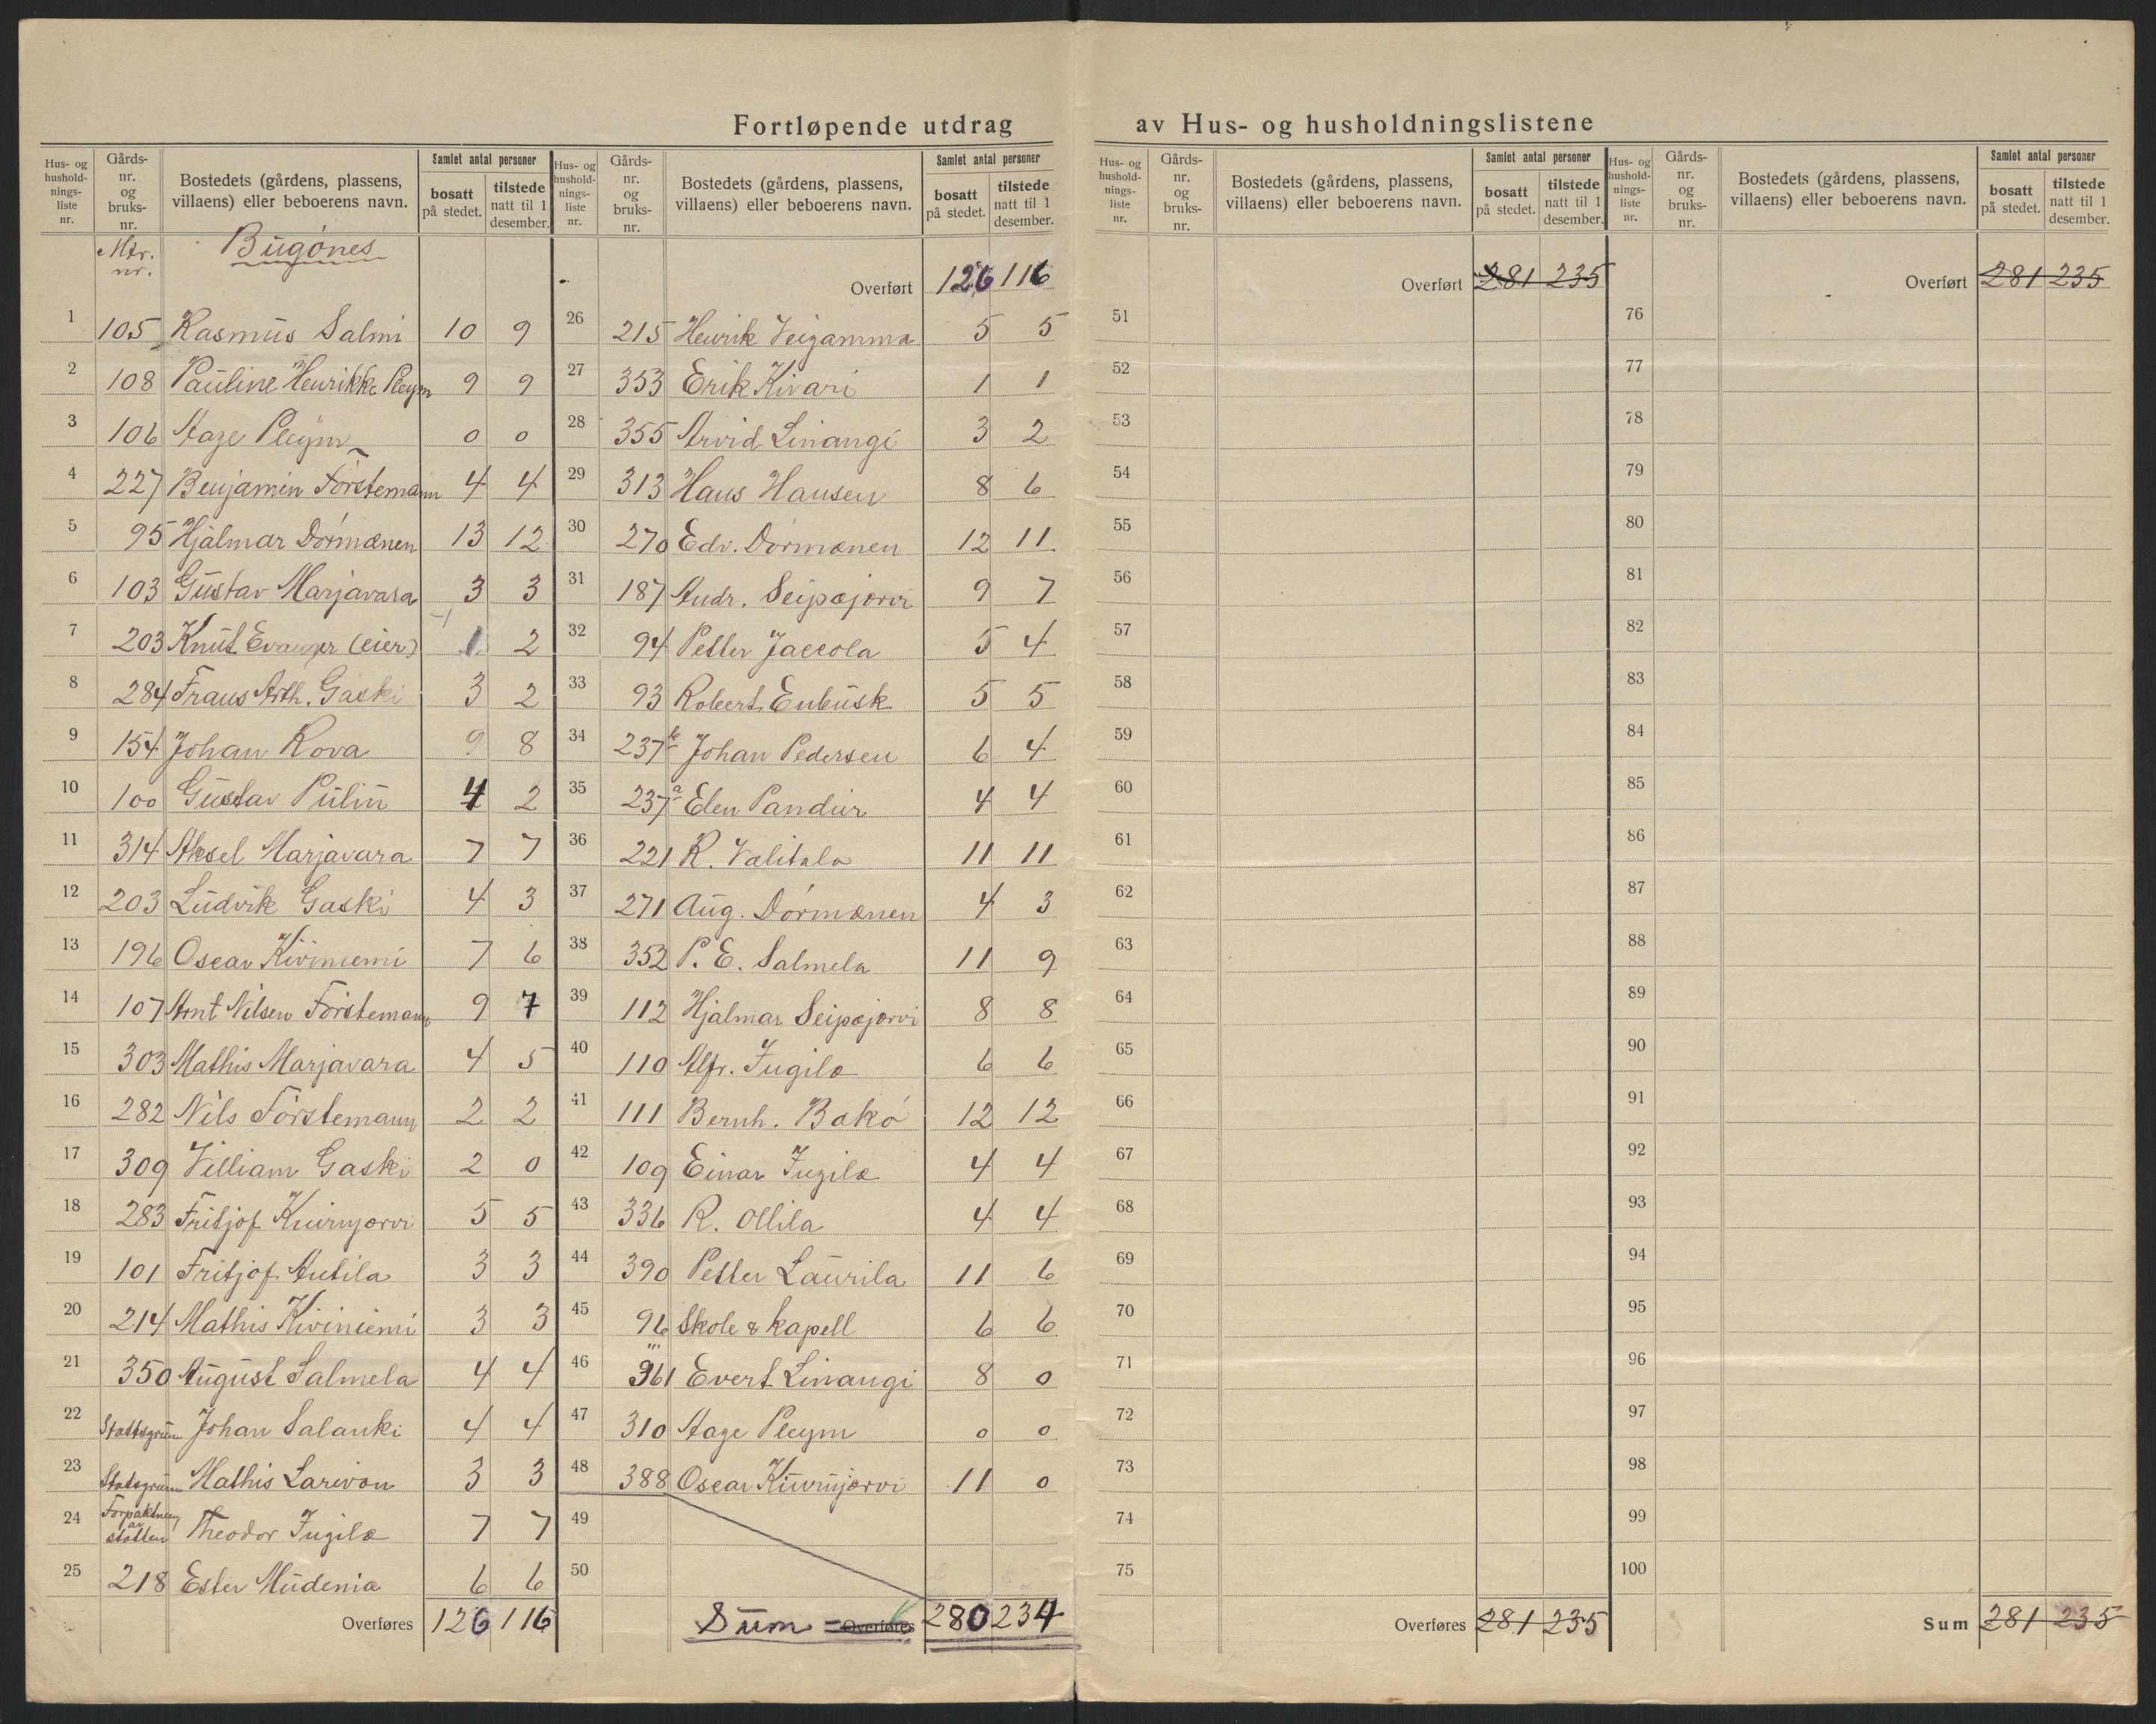 Fortløpende utdrag av Hus- og husholdningslistene
Hus- og husholdnings- liste nr. | Gårds- nr. og bruks- nr. | Bostedets (gårdens, plassens, villaens) eller beboerens navn. | Samlet antal personer | bosatt på stedet. | tilstede natt til 1 desember.
Mtr. nr. Bugönes
1 105 Rasmus Salmi 10 9
2 108 Pauline Henrikke Pleym 9 9
3 106 Aage Pleym 0 0
4 227 Benjamin Förstemann 4 4
5 95 Hjalmar Dörmænen 13 12
6 103 Gustav Marjavara 3 3
7 203 Knut Evanger (eier) -1 1 2
8 284 Frans Arth. Gaski 3 2
9 154 Johan Rova 9 8
10 100 Gustav Pulin 4 2
11 314 Aksel Marjavara 7 7
12 203 Ludvik Gaski 4 3
13 196 Oscar Kiviniemi 7 6
14 107 Arnt Nilsen Förstemann 9 7
15 303 Mathis Marjavara 4 5
16 282 Nils Förstemann 2 2
17 309 Villiam Gaski 2 0
18 283 Fritjof Kuivujærvi 5 5
19 101 Fritjof Antila 3 3
20 214 Mathis Kiviniemi 3 3
21 350 August Salmela 4 4
22 Stattsgrunn Johan Salanki 4 4
23 Statsgrunn Mathis Larivon 3 3
24 Forpaktning av statten Theodor Jugilæ 7 7
25 218 Ester Mudenia 6 6
Overføres 126 116
Hus- og husholdnings- liste nr. | Gårds- nr. og bruks- nr. | Bostedets (gårdens, plassens, villaens) eller beboerens navn. | Samlet antal personer | bosatt på stedet. | tilstede natt til 1 desember.
Overført 126 116
26 215 Henrik Veigamma 5 5
27 353 Erik Kivari 1 1
28 355 Arvid Linangi 3 2
29 313 Hans Hansen 8 6
30 270 Edv. Dörmænen 12 11
31 187 Andr. Seipæjærvi 9 7
32 94 Petter Jaccola 5 4
33 93 Robert Enbusk 5 5
34 237 b Johan Pedersen 6 4
35 237 a Elen Pandur 4 4
36 221 R. Valitalo 11 11
37 271 Aug. Dörmænen 4 3
38 352 P. E. Salmela 11 9
39 112 Hjalmar Seipæjærvi 8 8
40 110 Alfr. Jugilæ 6 6
41 111 Bernh. Bakö 12 12
42 109 Einar Jugilæ 4 4
43 336 R. Ollila 4 4
44 390 Petter Laurila 11 6
45 96 Skole & kapell 6 6
46 361 Evert Linangi 8 0
47 310 Aage Pleym 0 0
48 388 Oscar Kuivujærvi 11 0
49
50
Sum = Overføres 280 234
Hus- og husholdnings- liste nr. | Gårds- nr. og bruks- nr. | Bostedets (gårdens, plassens, villaens) eller beboerens navn. | Samlet antal personer | bosatt på stedet. | tilstede natt til 1 desember.
Overført 281 235
51
52
53
54
55
56
57
58
59
60
61
62
63
64
65
66
67
68
69
70
71
72
73
74
75
Overføres 281 235
Hus- og husholdnings- liste nr. | Gårds- nr. og bruks- nr. | Bostedets (gårdens, plassens, villaens) eller beboerens navn. | Samlet antal personer | bosatt på stedet. | tilstede natt til 1 desember.
Overført 281 235
76
77
78
79
80
81
82
83
84
85
86
87
88
89
90
91
92
93
94
95
96
97
98
99
100
Sum 281 235